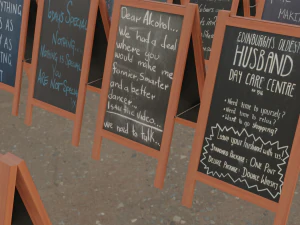 Special
Nothing..
Dear Alcohol...
We had a deal
where you
would make me
funnier, Smarter
and a better
dancer...
I saw the video...
we need to talk...
EDINBURGH'S OLDEST
HUSBAND
DAY CARE CENTRE
- Need time to yourself?
- Need time to relax?
- Want to go shopping?
Leave your husband with us!
STANDARD PACKAGE: ONE PINT
DELUXE PACKAGE: DOUBLE WHISKY